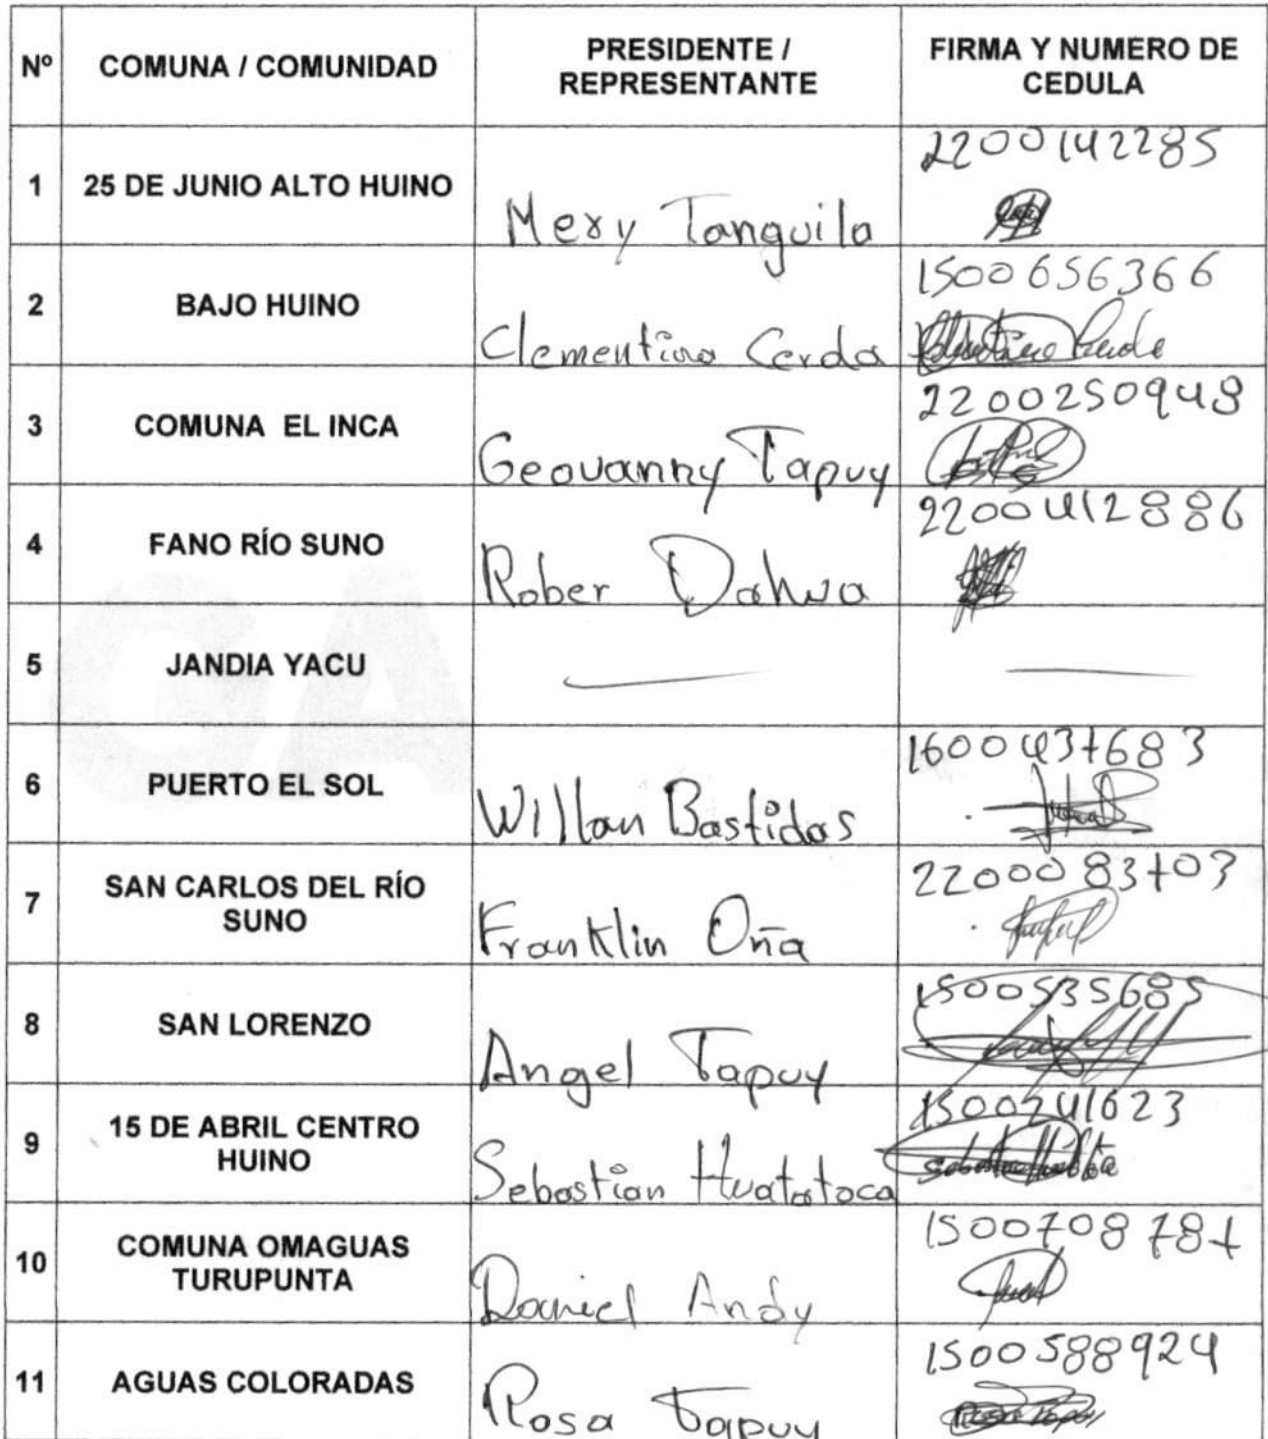 Nº COMUNA / COMUNIDAD PRESIDENTE / REPRESENTANTE FIRMA Y NUMERO DE CEDULA
1 25 DE JUNIO ALTO HUINO Mexy Tanguila 2200142285
2 BAJO HUINO Clementina Cerda 1500656366
3 COMUNA EL INCA Geovanny Tapuy 2200250948
4 FANO RÍO SUNO Rober Dahua 2200412886
5 JANDIA YACU
6 PUERTO EL SOL Willan Bastidas 1600437683
7 SAN CARLOS DEL RÍO SUNO Franklin Oña 2200083703
8 SAN LORENZO Angel Tapuy 1500535685
9 15 DE ABRIL CENTRO HUINO Sebastian Huatatoca 1500241623
10 COMUNA OMAGUAS TURUPUNTA Daniel Andy 1500708787
11 AGUAS COLORADAS Rosa Tapuy 1500588924
CA